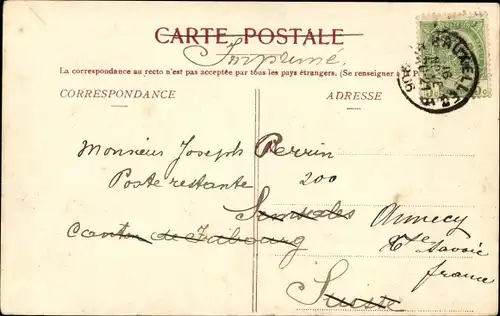 CARTE POSTALE
Imprimé
La correspondance au recto n'est pas acceptée par tous les pays étrangers. (Se renseigner à la P
CORRESPONDANCE
ADRESSE
BRUXELLES
Monsieur Joseph Perrin
Poste restante 200
Semsales
Canton de Fribourg
Annecy
Hte Savoie
france
Suisse